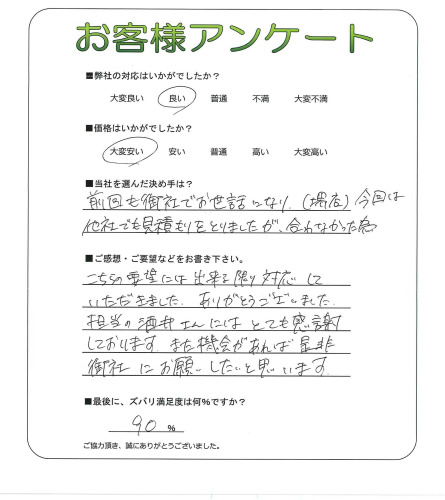 お客様アンケート
■弊社の対応はいかがでしたか？
大変良い 良い 普通 不満 大変不満
■価格はいかがでしたか？
大変安い 安い 普通 高い 大変高い
■当社を選んだ決め手は？
前回も御社でお世話になり、(堺店) 今回は
他社でも見積もりをとりましたが、合わなかった為
■ご感想・ご要望などをお書き下さい。
こちらの要望には出来る限り対応して
いただきました。ありがとうございました。
担当の酒井さんにはとても感謝
しております。また機会があれば是非
御社にお願いしたいと思います。
■最後に、ズバリ満足度は何%ですか？
90 %
ご協力頂き、誠にありがとうございました。